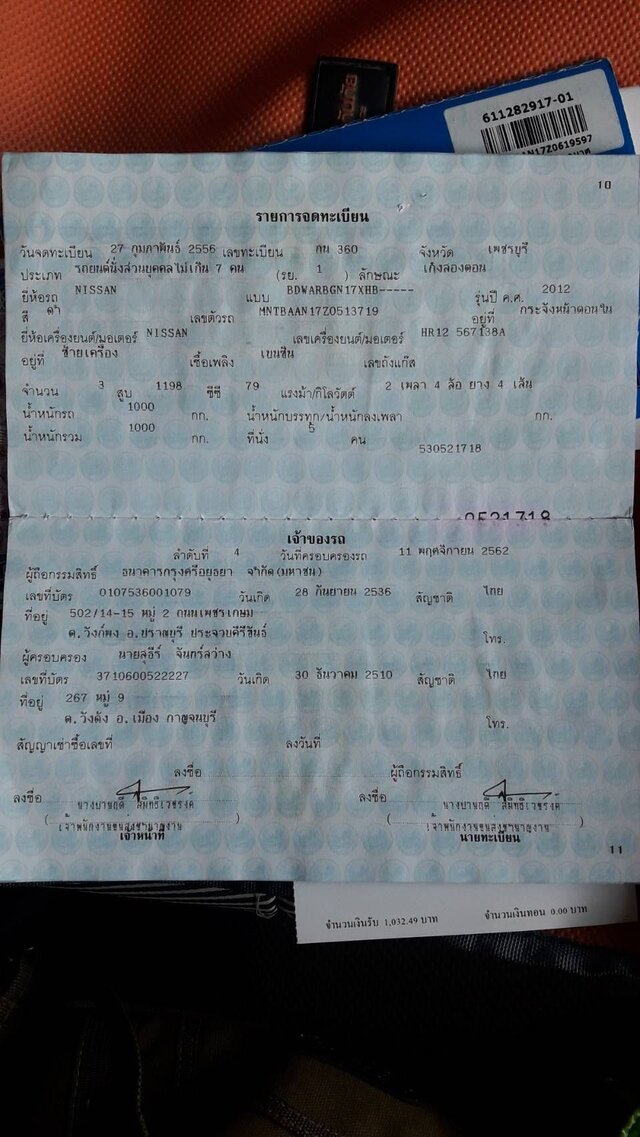 611282917-01
N17Z0619597
10
รายการจดทะเบียน
วันจดทะเบียน 27 กุมภาพันธ์ 2556 เลขทะเบียน กน 360 จังหวัด เพชรบุรี
ประเภท รถยนต์นั่งส่วนบุคคลไม่เกิน 7 คน (รย. 1 ) ลักษณะ เก๋งสองตอน
ยี่ห้อรถ NISSAN แบบ BDWARBGN17XHB----- รุ่นปี ค.ศ. 2012
สี ดำ เลขตัวรถ MNTBAAN17Z0513719 อยู่ที่ กระจังหน้าตอนใน
ยี่ห้อเครื่องยนต์/มอเตอร์ NISSAN เลขเครื่องยนต์/มอเตอร์ HR12 567138A
อยู่ที่ ซ้ายเครื่อง เชื้อเพลิง เบนซิน เลขถังแก๊ส
จำนวน 3 สูบ 1198 ซีซี 79 แรงม้า/กิโลวัตต์ 2 เพลา 4 ล้อ ยาง 4 เส้น
น้ำหนักรถ 1000 กก. น้ำหนักบรรทุก/น้ำหนักลงเพลา กก.
น้ำหนักรวม 1000 กก. ที่นั่ง 5 คน
530521718
0521718
เจ้าของรถ
ลำดับที่ 4 วันที่ครอบครองรถ 11 พฤศจิกายน 2562
ผู้ถือกรรมสิทธิ์ ธนาคารกรุงศรีอยุธยา จำกัด(มหาชน)
เลขที่บัตร 0107536001079 วันเกิด 28 กันยายน 2536 สัญชาติ ไทย
ที่อยู่ 502/14-15 หมู่ 2 ถนนเพชรเกษม
ต.วังก์พง อ.ปราณบุรี ประจวบคีรีขันธ์ โทร.
ผู้ครอบครอง นายสุธีร์ จันทร์สว่าง
เลขที่บัตร 3710600522227 วันเกิด 30 ธันวาคม 2510 สัญชาติ ไทย
ที่อยู่ 267 หมู่ 9
ต.วังด้ง อ.เมือง กาญจนบุรี โทร.
สัญญาเช่าซื้อเลขที่ ลงวันที่
ลงชื่อ ผู้ถือกรรมสิทธิ์
ลงชื่อ ลงชื่อ
เจ้าพนักงานขนส่งชำนาญงาน เจ้าพนักงานขนส่งชำนาญงาน
เจ้าหน้าที่ นายทะเบียน
11
จำนวนเงินรับ 1,032.49 บาท จำนวนเงินทอน 0.00 บาท